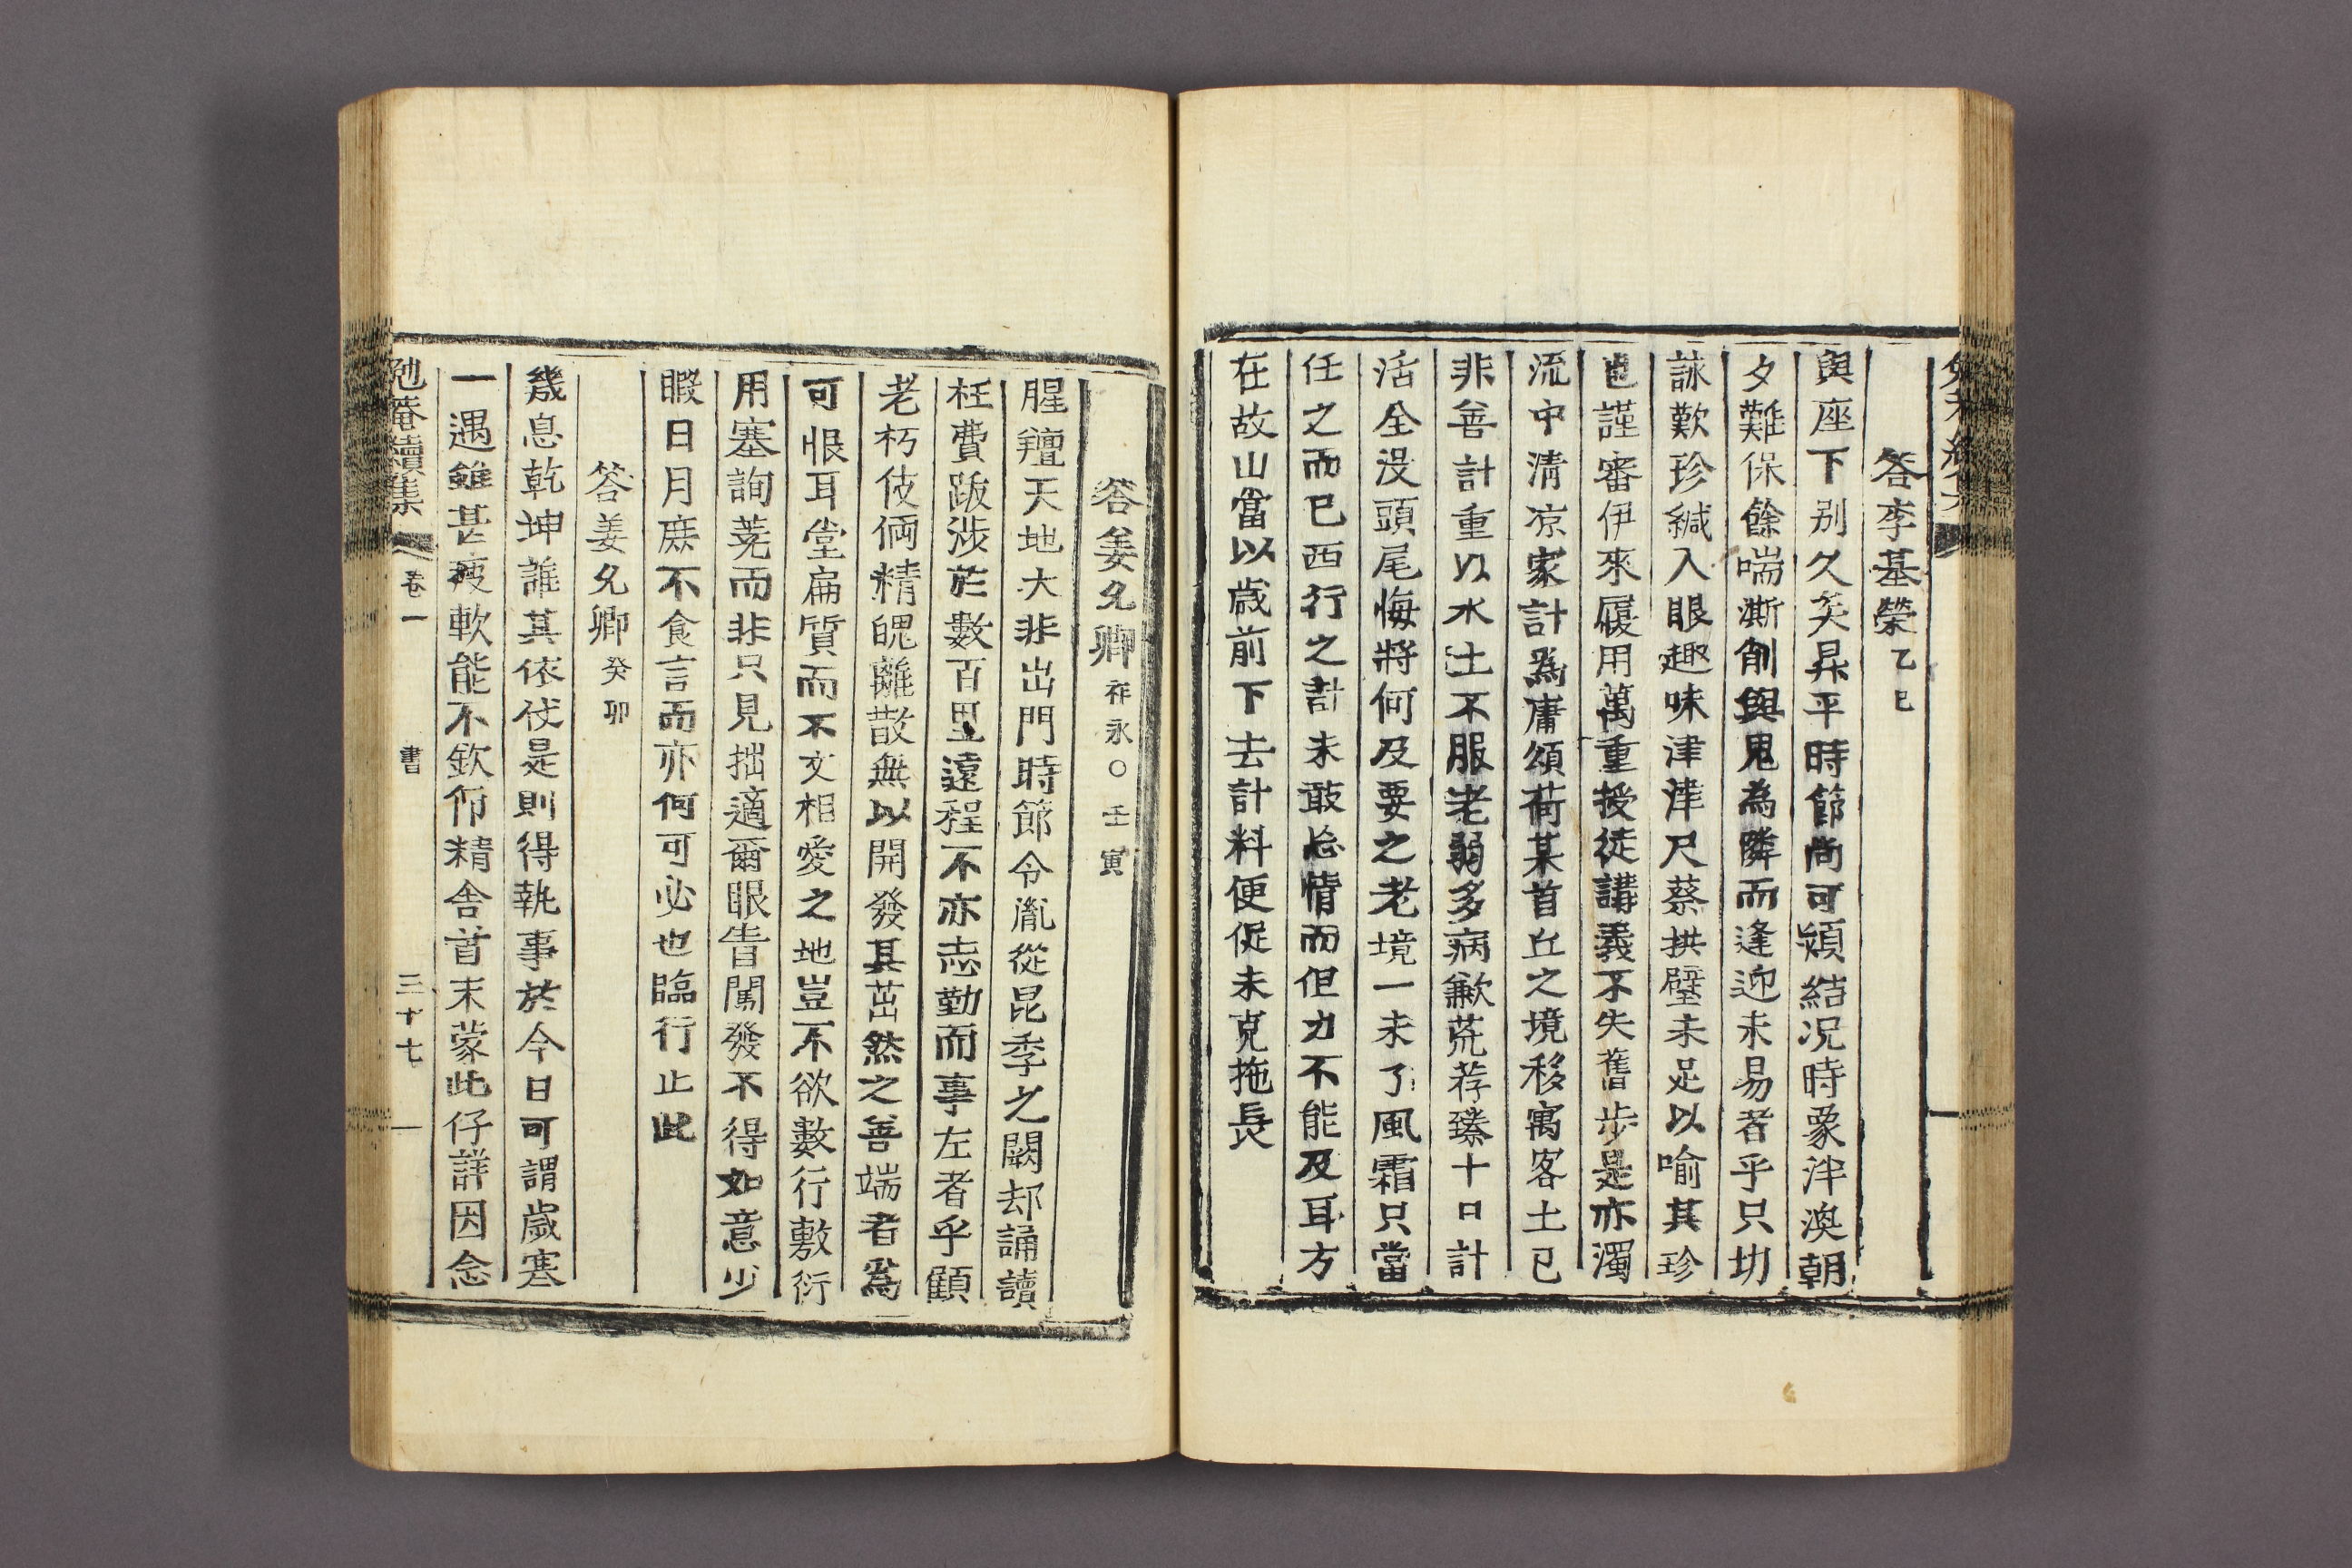 答李基榮 乙巳
與座下别久矣昇平時節尚可類結况時象泮渙朝
夕難保餘喘澌削與鬼為隣而逢迎未易者乎只切
詠歎珍緘入眼趣味津津尺蔡拱璧未足以喻其珍
也謹審伊來履用萬重授徒講義不失舊步是亦濁
流中清凉家計爲庸頌荷某首丘之境移寓客土已
非善計重以水土不服老弱多病歉荒荐臻十口計
活全没頭尾悔將何及要之老境一未了風霜只當
任之而已西行之計未敢忘情而但力不能及耳方
在故山當以歲前下去計料便促未克拖長
答姜允卿 祚永○壬寅
腥羶天地大非出門時節令胤從昆季之闕却誦讀
枉費跋涉於數百里遠程不亦志勤而事左者乎顧
老朽伎倆精魄離散無以開發其茁然之善端者爲
可恨耳堂扁質而不文相愛之地豈不欲數行敷衍
用塞詢蕘而非只見拙適爾眼眚闖發不得如意少
暇日月庶不食言而亦何可必也臨行止此
答姜允卿 癸卯
幾息乾坤誰其依仗是則得執事於今日可謂歲寒
一遇雖甚疲軟能不欽仰精舍首末蒙此仔詳因念
勉菴續集 卷一 書 三十七